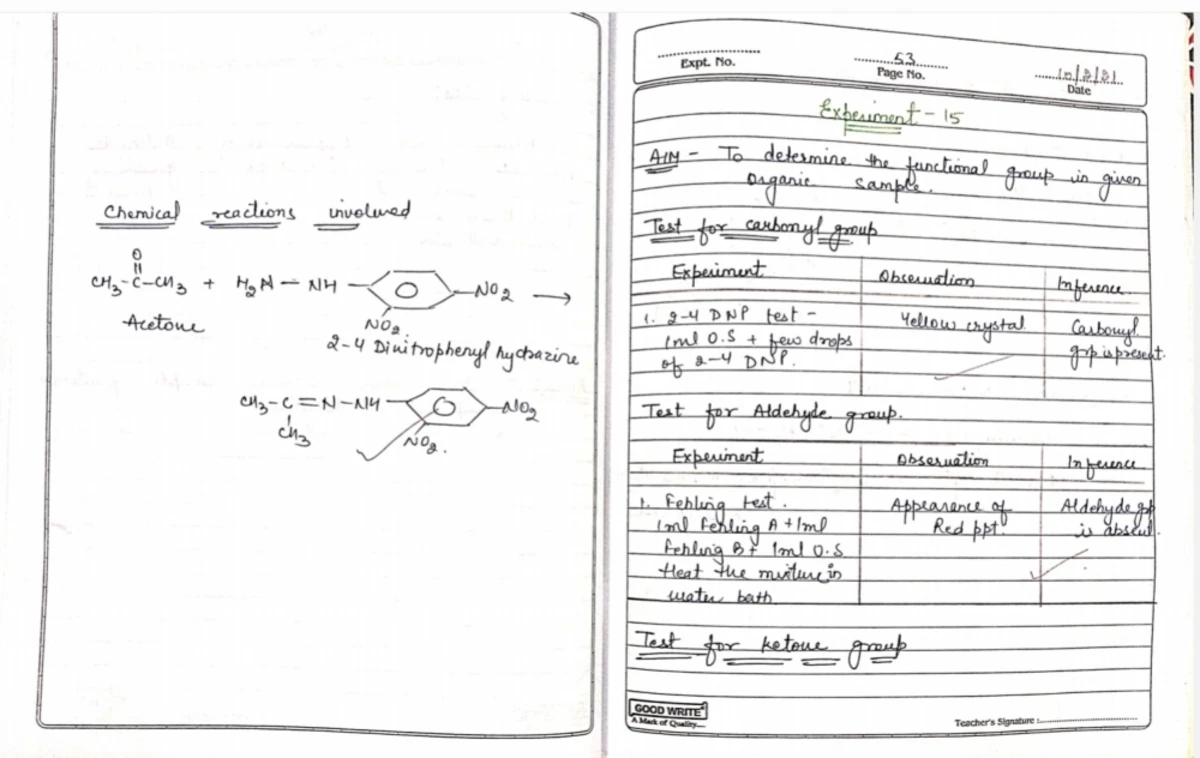 Chemical reactions involved
O
CH3-C-CH3 + H2N-NH- -NO2 →
Acetone
NO2
2-4 Dinitrophenyl hydrazine
CH3-C=N-NH- -NO2
CH3
NO2.
Expt. No.
53
Page No.
10/2/21
Date
Experiment - 15
AIM - To determine the functional group in given
Organic sample.
Test for carbonyl group
Experiment Observation Inference
1. 2-4 DNP test - Yellow crystal Carbonyl
1ml O.S + few drops grp is present.
of 2-4 DNP.
Test for Aldehyde group.
Experiment Observation Inference
1. Fehling test. Appearance of Aldehyde grp
1ml Fehling A + 1ml Red ppt. is absent.
Fehling B + 1ml O.S
Heat the mixture in
water bath
Test for ketone group
GOOD WRITE
A Mark of Quality
Teacher's Signature :